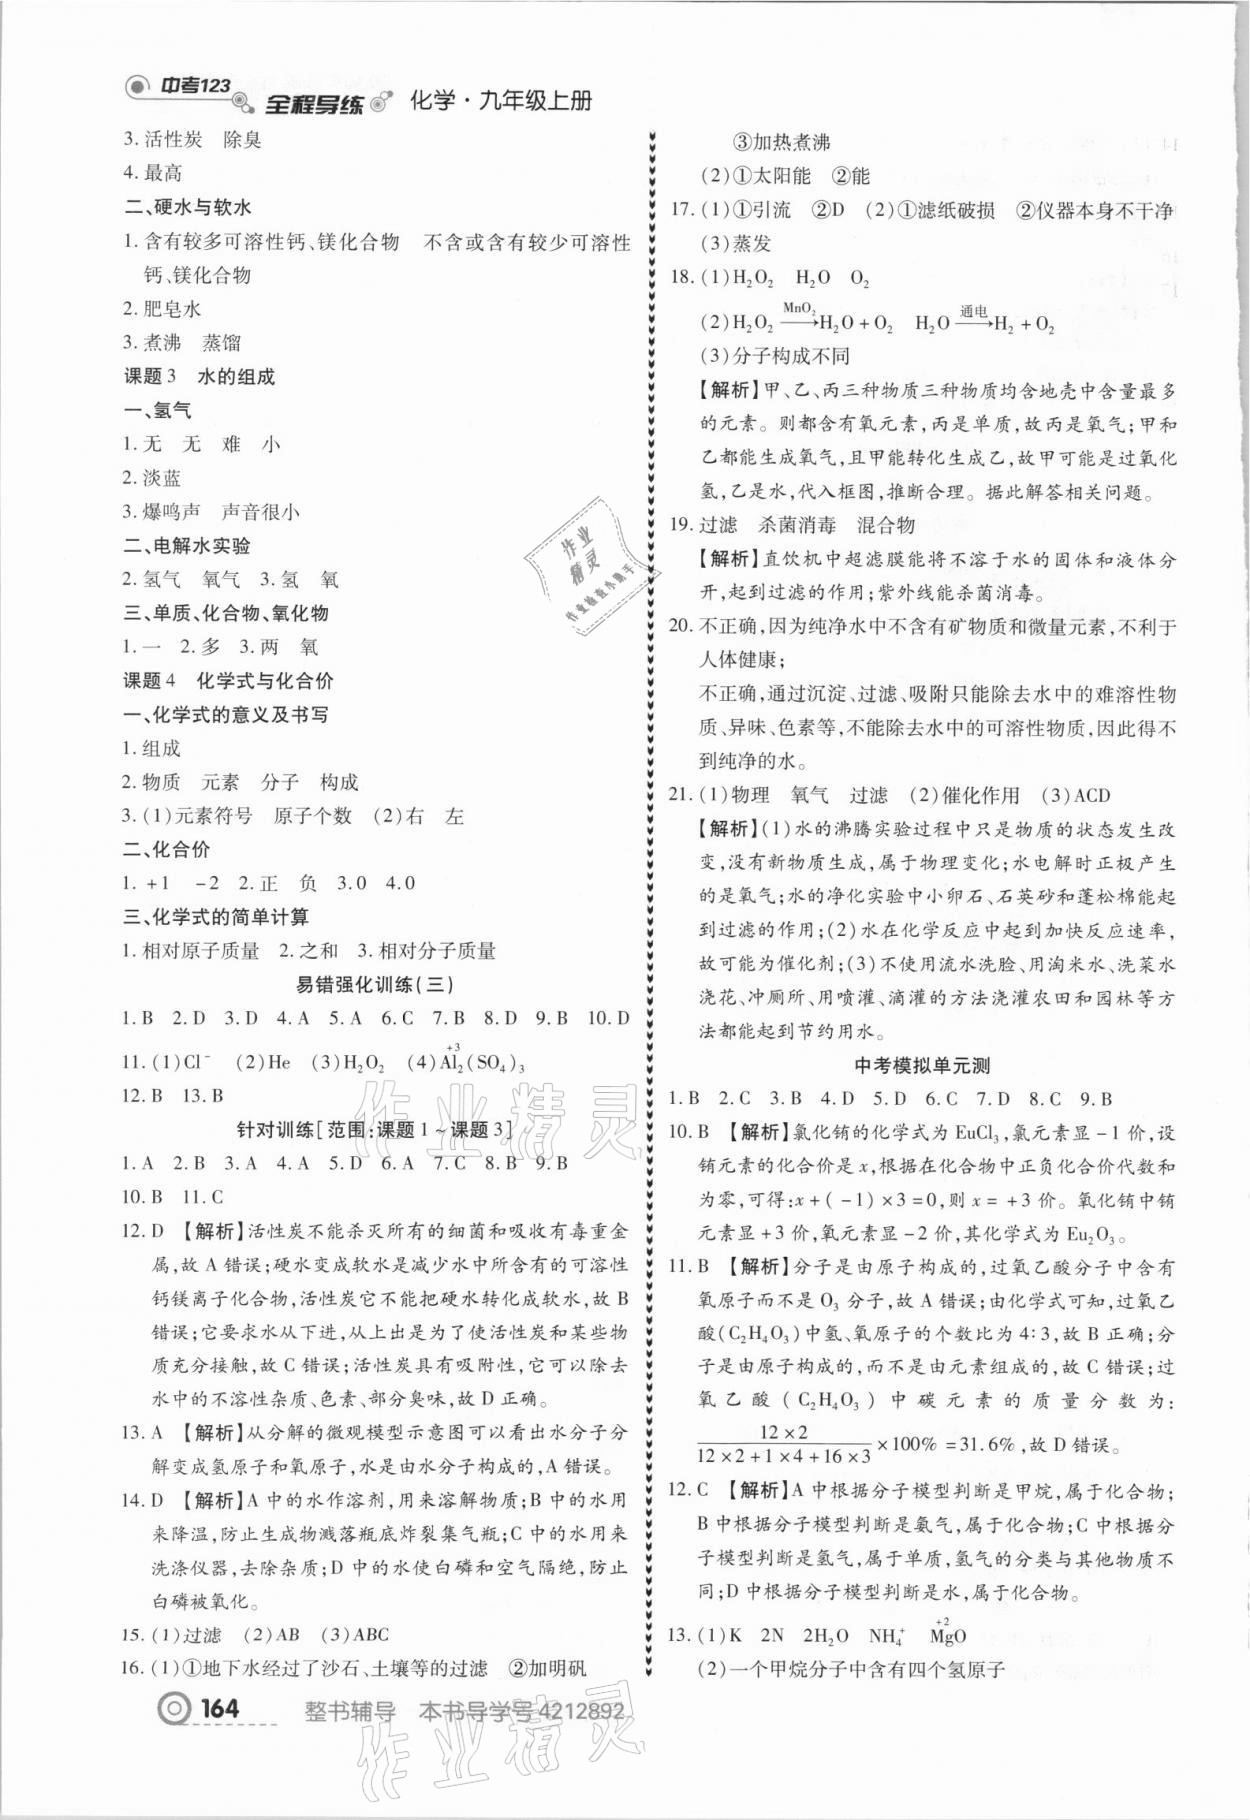 中考123
全程导练 化学·九年级上册
3. 活性炭 除臭
4. 最高
二、硬水与软水
1. 含有较多可溶性钙、镁化合物 不含或含有较少可溶性
钙、镁化合物
2. 肥皂水
3. 煮沸 蒸馏
课题3 水的组成
一、氢气
1. 无 无 难 小
2. 淡蓝
3. 爆鸣声 声音很小
二、电解水实验
2. 氢气 氧气 3. 氢 氧
三、单质、化合物、氧化物
1. 一 2. 多 3. 两 氧
课题4 化学式与化合价
一、化学式的意义及书写
1. 组成
2. 物质 元素 分子 构成
3. (1)元素符号 原子个数 (2)右 左
二、化合价
1. +1 -2 2. 正 负 3. 0 4. 0
三、化学式的简单计算
1. 相对原子质量 2. 之和 3. 相对分子质量
易错强化训练(三)
1. B 2. D 3. D 4. A 5. A 6. C 7. B 8. D 9. B 10. D
11. (1)Cl⁻ (2)He (3)H₂O₂ (4)A̅l₂(SO₄)₃ +3
12. B 13. B
针对训练[范围:课题1~课题3]
1. A 2. B 3. A 4. A 5. D 6. A 7. C 8. B 9. B
10. B 11. C
12. D 【解析】活性炭不能杀灭所有的细菌和吸收有毒重金
属,故A错误;硬水变成软水是减少水中所含有的可溶性
钙镁离子化合物,活性炭它不能把硬水转化成软水,故B
错误;它要求水从下进,从上出是为了使活性炭和某些物
质充分接触,故C错误;活性炭具有吸附性,它可以除去
水中的不溶性杂质、色素、部分臭味,故D正确。
13. A 【解析】从分解的微观模型示意图可以看出水分子分
解变成氢原子和氧原子,水是由水分子构成的,A错误。
14. D 【解析】A中的水作溶剂,用来溶解物质;B中的水用
来降温,防止生成物溅落瓶底炸裂集气瓶;C中的水用来
洗涤仪器,去除杂质;D中的水使白磷和空气隔绝,防止
白磷被氧化。
15. (1)过滤 (2)AB (3)ABC
16. (1)①地下水经过了沙石、土壤等的过滤 ②加明矾
164 整书辅导 本书导学号4212892
③加热煮沸
(2)①太阳能 ②能
17. (1)①引流 ②D (2)①滤纸破损 ②仪器本身不干净
(3)蒸发
18. (1)H₂O₂ H₂O O₂
(2)H₂O₂ —MnO₂→ H₂O+O₂ H₂O —通电→ H₂+O₂
(3)分子构成不同
【解析】甲、乙、丙三种物质三种物质均含地壳中含量最多
的元素。则都含有氧元素,丙是单质,故丙是氧气;甲和
乙都能生成氧气,且甲能转化生成乙,故甲可能是过氧化
氢,乙是水,代入框图,推断合理。据此解答相关问题。
19. 过滤 杀菌消毒 混合物
【解析】直饮机中超滤膜能将不溶于水的固体和液体分
开,起到过滤的作用;紫外线能杀菌消毒。
20. 不正确,因为纯净水中不含有矿物质和微量元素,不利于
人体健康;
不正确,通过沉淀、过滤、吸附只能除去水中的难溶性物
质、异味、色素等,不能除去水中的可溶性物质,因此得不
到纯净的水。
21. (1)物理 氧气 过滤 (2)催化作用 (3)ACD
【解析】(1)水的沸腾实验过程中只是物质的状态发生改
变,没有新物质生成,属于物理变化;水电解时正极产生
的是氧气;水的净化实验中小卵石、石英砂和蓬松棉能起
到过滤的作用;(2)水在化学反应中起到加快反应速率,
故可能为催化剂;(3)不使用流水洗脸、用淘米水、洗菜水
浇花、冲厕所、用喷灌、滴灌的方法浇灌农田和园林等方
法都能起到节约用水。
中考模拟单元测
1. B 2. C 3. B 4. D 5. D 6. C 7. D 8. C 9. B
10. B 【解析】氯化铕的化学式为EuCl₃,氯元素显-1价,设
铕元素的化合价是x,根据在化合物中正负化合价代数和
为零,可得:x+(-1)×3=0,则x=+3价。氧化铕中铕
元素显+3价,氧元素显-2价,其化学式为Eu₂O₃。
11. B 【解析】分子是由原子构成的,过氧乙酸分子中含有
氧原子而不是O₃分子,故A错误;由化学式可知,过氧乙
酸(C₂H₄O₃)中氢、氧原子的个数比为4:3,故B正确;分
子是由原子构成的,而不是由元素组成的,故C错误;过
氧乙酸(C₂H₄O₃)中碳元素的质量分数为:
12×2/(12×2+1×4+16×3)×100%=31.6%,故D错误。
12. C 【解析】A中根据分子模型判断是甲烷,属于化合物;
B中根据分子模型判断是氨气,属于化合物;C中根据分
子模型判断是氢气,属于单质,氢气的分类与其他物质不
同;D中根据分子模型判断是水,属于化合物。
13. (1)K 2N 2H₂O NH₄⁺ MgO +2
(2)一个甲烷分子中含有四个氢原子
作业精灵
作业检查小助手
作业精灵
作业精灵